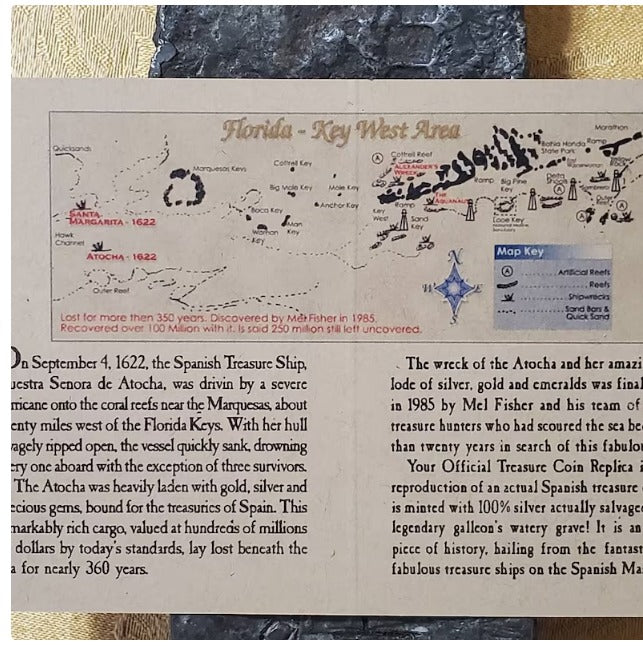 Florida - Key West Area
Quicksands
Marquesas Keys
Cottrell Key
Big Mole Key
Mule Key
Boca Key
Anchor Key
Man Key
Woman Key
SANTA
MARGARITA - 1622
Hawk
Channel
ATOCHA - 1622
Outer Reef
A
Cottrell Reef
ALEXANDER'S
WRECK
THE
AQUANAUT
Ramp
Key
West
Sand
Key
Ramp
Big Pine
Key
Looe Key
Bahia Honda
State Park
Marathon
Delta
Shoals
Sombrero
A
A
N
W
E
S
Map Key
A ........ Artificial Reefs
........ Reefs
........ Shipwrecks
........ Sand Bars &
Quick Sand
Lost for more then 350 years. Discovered by Mel Fisher in 1985.
Recovered over 100 Million with it. Is said 250 million still left uncovered.
On September 4, 1622, the Spanish Treasure Ship,
uestra Senora de Atocha, was drivin by a severe
rricane onto the coral reefs near the Marquesas, about
enty miles west of the Florida Keys. With her hull
vagely ripped open, the vessel quickly sank, drowning
ery one aboard with the exception of three survivors.
The Atocha was heavily laden with gold, silver and
ecious gems, bound for the treasuries of Spain. This
markably rich cargo, valued at hundreds of millions
dollars by today's standards, lay lost beneath the
a for nearly 360 years.
The wreck of the Atocha and her amazi
lode of silver, gold and emeralds was final
in 1985 by Mel Fisher and his team of
treasure hunters who had scoured the sea be
than twenty years in search of this fabulou
Your Official Treasure Coin Replica i
reproduction of an actual Spanish treasure
is minted with 100% silver actually salvage
legendary galleon's watery grave! It is an
piece of history, hailing from the fantast
fabulous treasure ships on the Spanish Ma